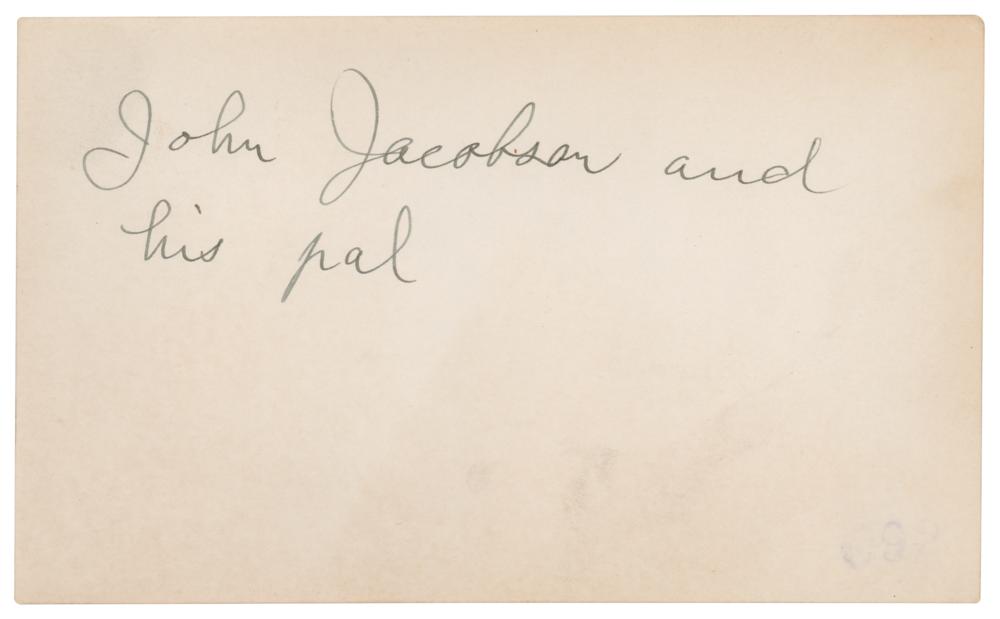 John Jacobson and
his pal